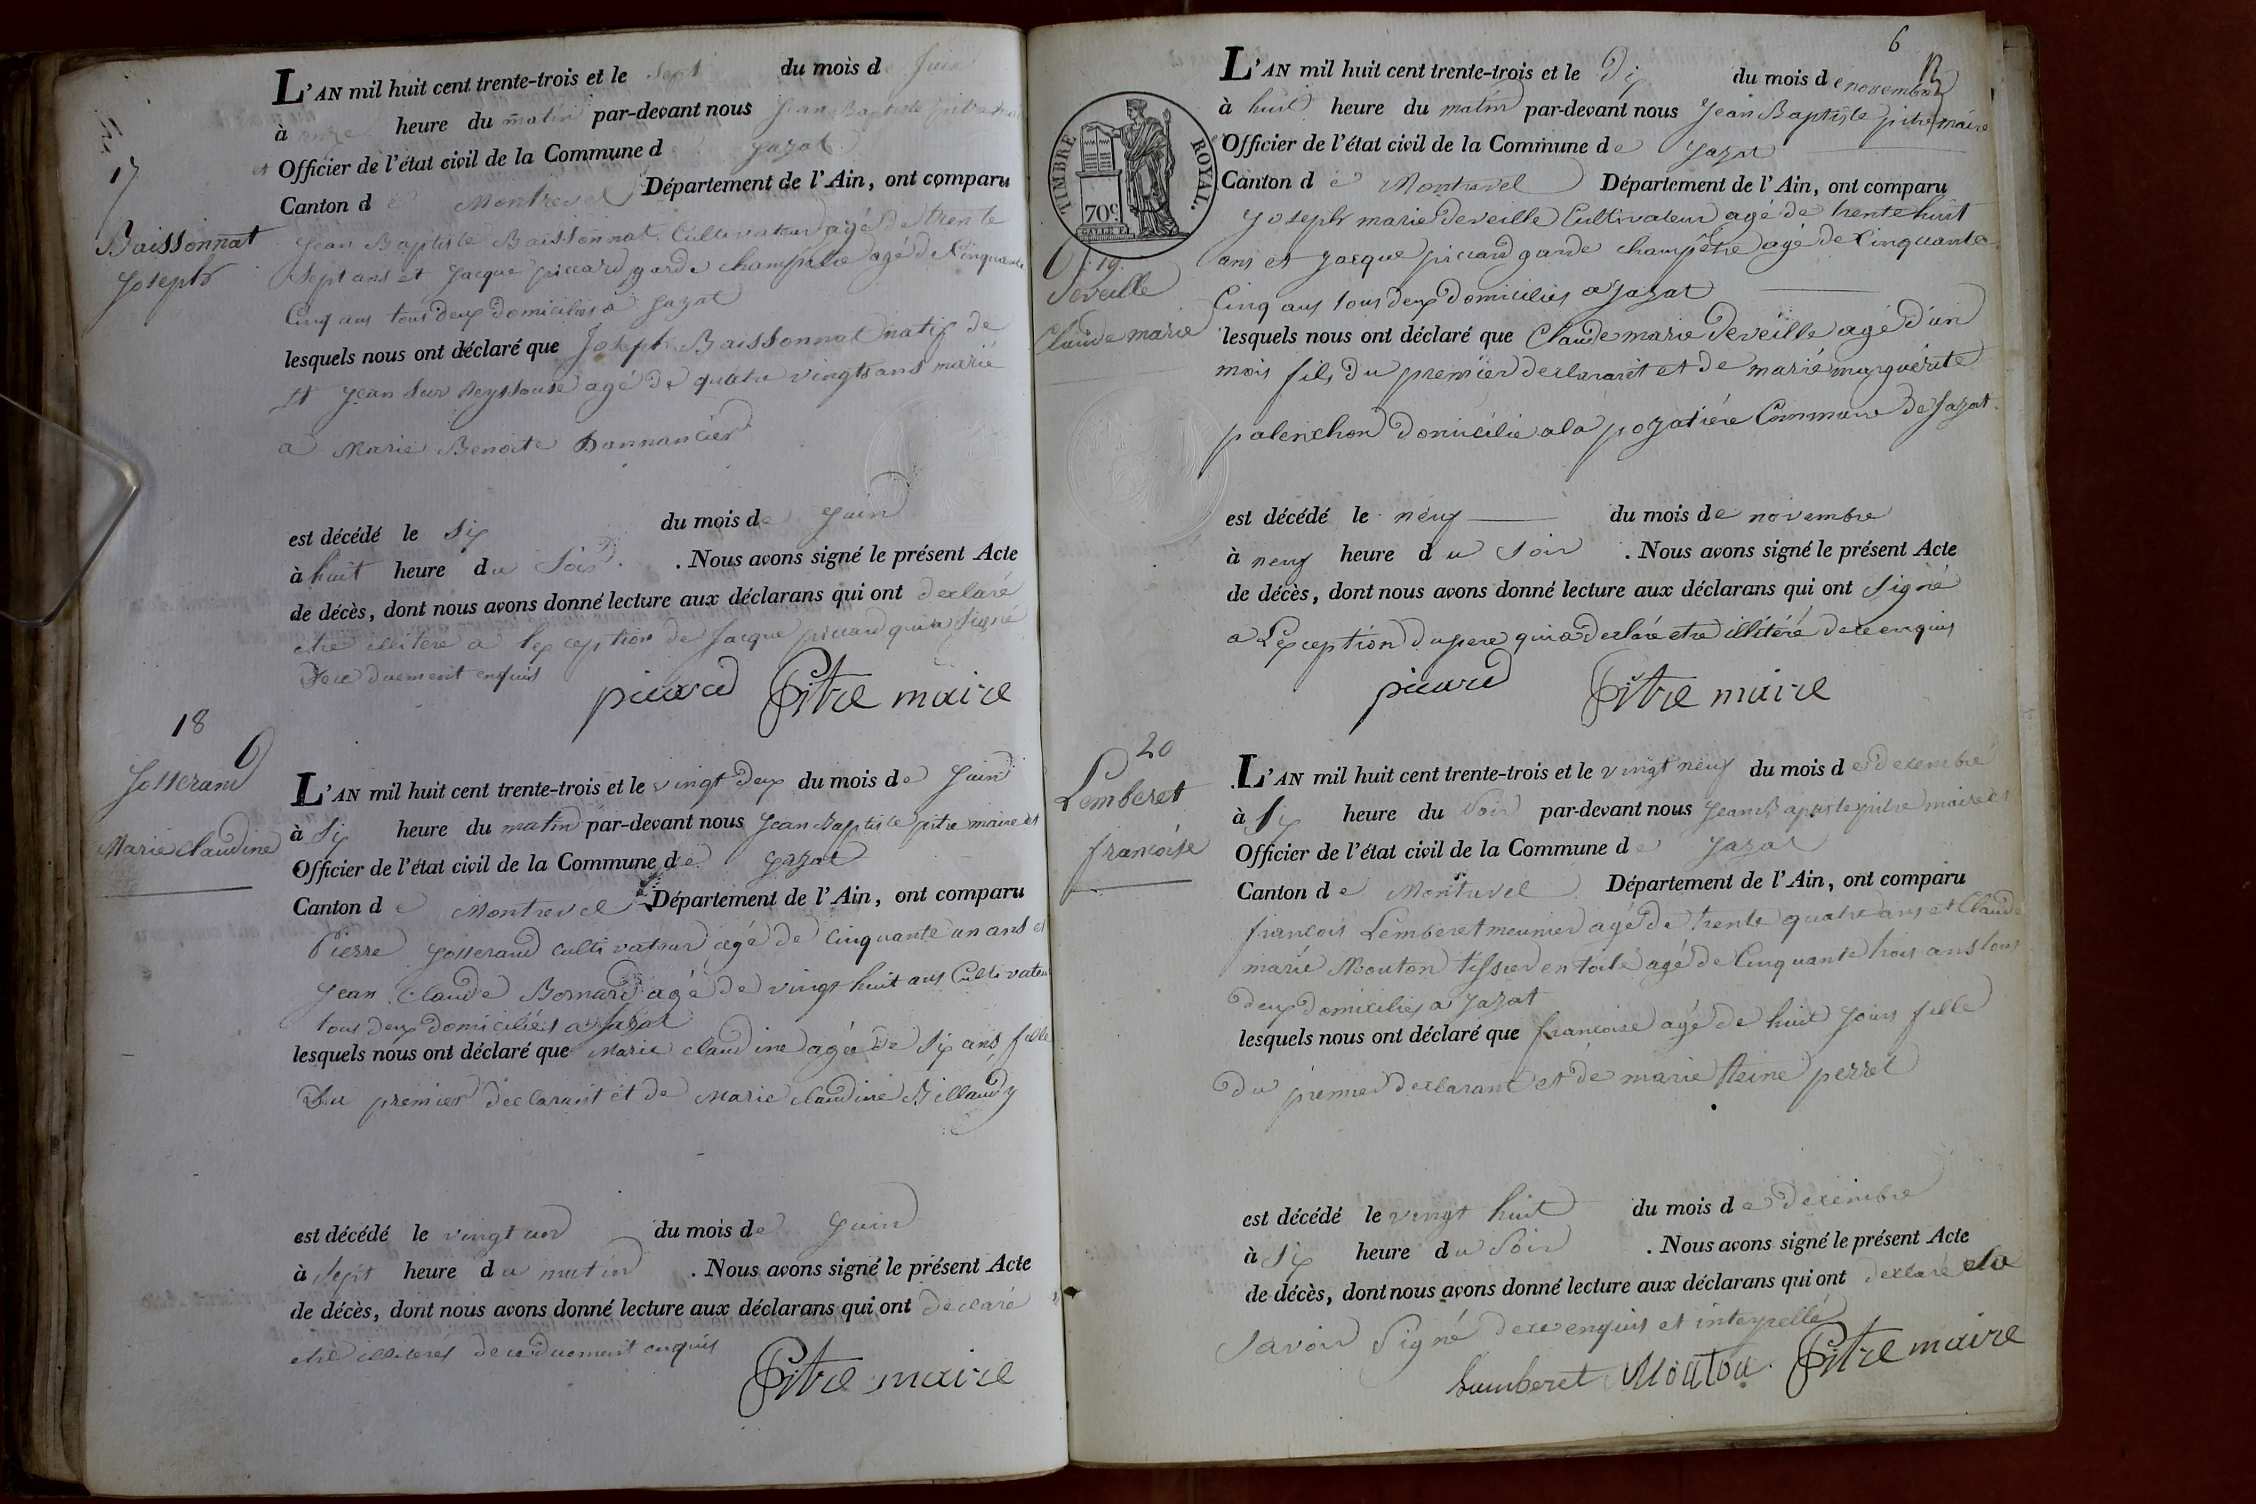 17
Baissonnat
Joseph
L'AN mil huit cent trente-trois et le sept du mois d juin
à onze heure du matin par-devant nous Jean Baptiste pitre maire
et Officier de l'état civil de la Commune d Jazat
Canton de Montrevel Département de l'Ain, ont comparu
Jean Baptiste Baissonnat Cultivateur agé de trente
sept ans et Jacque piccard garde champetre agé de Cinquante
Cinq ans tous deux domiciliés a Jazat
lesquels nous ont déclaré que Joseph Baissonnat natif de
St Jean sur Reyssouse agé de quatre vingts ans marié
a Marie Benoite Dannancier
est décédé le six du mois de Juin
à huit heure du Soir . Nous avons signé le présent Acte
de décès, dont nous avons donné lecture aux déclarans qui ont declaré
etre illiteré a lexception de Jacque piccard qui a signé
de ce duement enquis
picard Pitre maire
18
Josserand
Marie claudine
L'AN mil huit cent trente-trois et le vingt deux du mois de Juin
à six heure du matin par-devant nous Jean Baptiste pitre maire et
Officier de l'état civil de la Commune de Jazat
Canton de Montrevel Département de l'Ain, ont comparu
Pierre Josserand cultivateur agé de Cinquante un ans et
Jean Claude Bornard agé de vingt huit ans Cultivateur
tous deux domiciliés a Jazat
lesquels nous ont déclaré que Marie claudine agée de six ans fille
Du premier declarant et de Marie claudine Billaudy
est décédé le vingt un du mois de Juin
à sept heure du matin . Nous avons signé le présent Acte
de décès, dont nous avons donné lecture aux déclarans qui ont declaré
etre illiterés de ce duement enquis
Pitre maire
6
TIMBRE ROYAL.
70c.
19
Deveille
Claude marie
L'AN mil huit cent trente-trois et le dix du mois de novembre
à huit heure du matin par-devant nous Jean Baptiste pitre maire
et Officier de l'état civil de la Commune de Jazat
Canton de Montrevel Département de l'Ain, ont comparu
Joseph marie Deveille Cultivateur agé de trente huit
ans et Jacque piccard garde champêtre agé de Cinquante
Cinq ans tous deux domiciliés a Jazat
lesquels nous ont déclaré que Claude marie Deveille agé d'un
mois fils du premier declarant et de marie marguérite
palenchon domicilié a la pozatiére Commune de Jazat
est décédé le neuf du mois de novembre
à neuf heure du Soir . Nous avons signé le présent Acte
de décès, dont nous avons donné lecture aux déclarans qui ont signé
a Lexception du pere qui a declaré etre illitéré de ce enquis
picard Pitre maire
20
Lemberet
francoise
L'AN mil huit cent trente-trois et le vingt neuf du mois de decembre
à six heure du Soir par-devant nous Jean Baptiste pitre maire et
Officier de l'état civil de la Commune de Jazat
Canton de Montrevel Département de l'Ain, ont comparu
francois Lemberet meunier agé de trente quatre ans et Claude
marie Mouton tissier en toile agé de Cinquante trois ans tous
deux domiciliés a Jazat
lesquels nous ont déclaré que francoise agé de huit Jours fille
du premier declarant et de marie Reine perret
est décédé le vingt huit du mois de decembre
à six heure du Soir . Nous avons signé le présent Acte
de décès, dont nous avons donné lecture aux déclarans qui ont declaré
savoir signé de ce enquis et interpellé
Lumberet Mouton Pitre maire